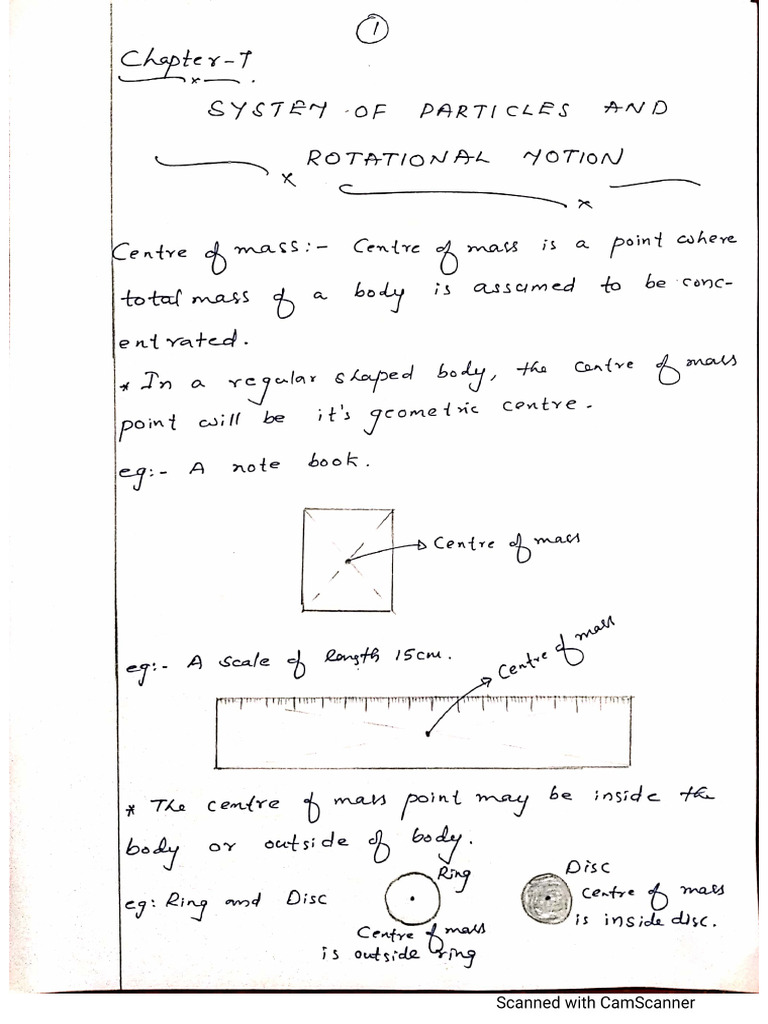 1
Chapter-7
SYSTEM OF PARTICLES AND
ROTATIONAL MOTION
Centre of mass:- Centre of mass is a point where
total mass of a body is assumed to be conc-
entrated.
* In a regular shaped body, the centre of mass
point will be it's geometric centre.
eg:- A note book.
Centre of mass
eg:- A scale of length 15cm.
Centre of mass
* The centre of mass point may be inside the
body or outside of body.
eg: Ring and Disc
Ring
Centre of mass
is outside ring
Disc
Centre of mass
is inside disc.
Scanned with CamScanner